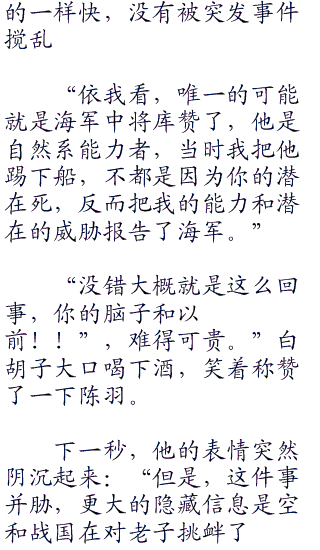 的一样快，没有被突发事件
搅乱
“依我看，唯一的可能
就是海军中将库赞了，他是
自然系能力者，当时我把他
踢下船，不都是因为你的潜
在死，反而把我的能力和潜
在的威胁报告了海军。”
“没错大概就是这么回
事，你的脑子和以
前！！”，难得可贵。”白
胡子大口喝下酒，笑着称赞
了一下陈羽。
下一秒，他的表情突然
阴沉起来：“但是，这件事
并胁，更大的隐藏信息是空
和战国在对老子挑衅了